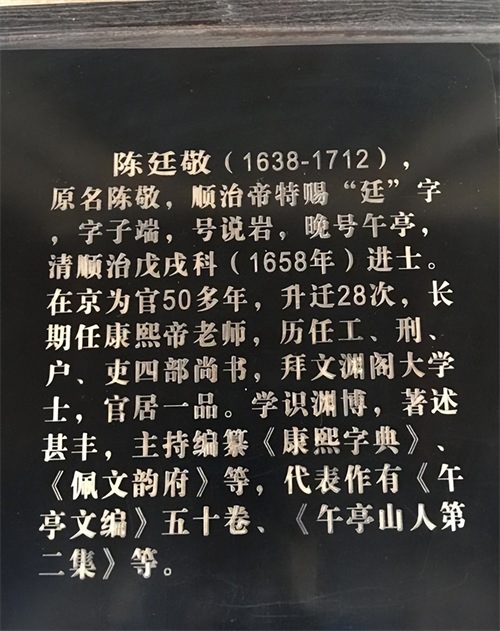 陈廷敬（1638-1712），
原名陈敬，顺治帝特赐“廷”字
，字子端，号说岩，晚号午亭，
清顺治戊戌科（1658年）进士。
在京为官50多年，升迁28次，长
期任康熙帝老师，历任工、刑、
户、吏四部尚书，拜文渊阁大学
士，官居一品。学识渊博，著述
甚丰，主持编纂《康熙字典》、
《佩文韵府》等，代表作有《午
亭文编》五十卷、《午亭山人第
二集》等。